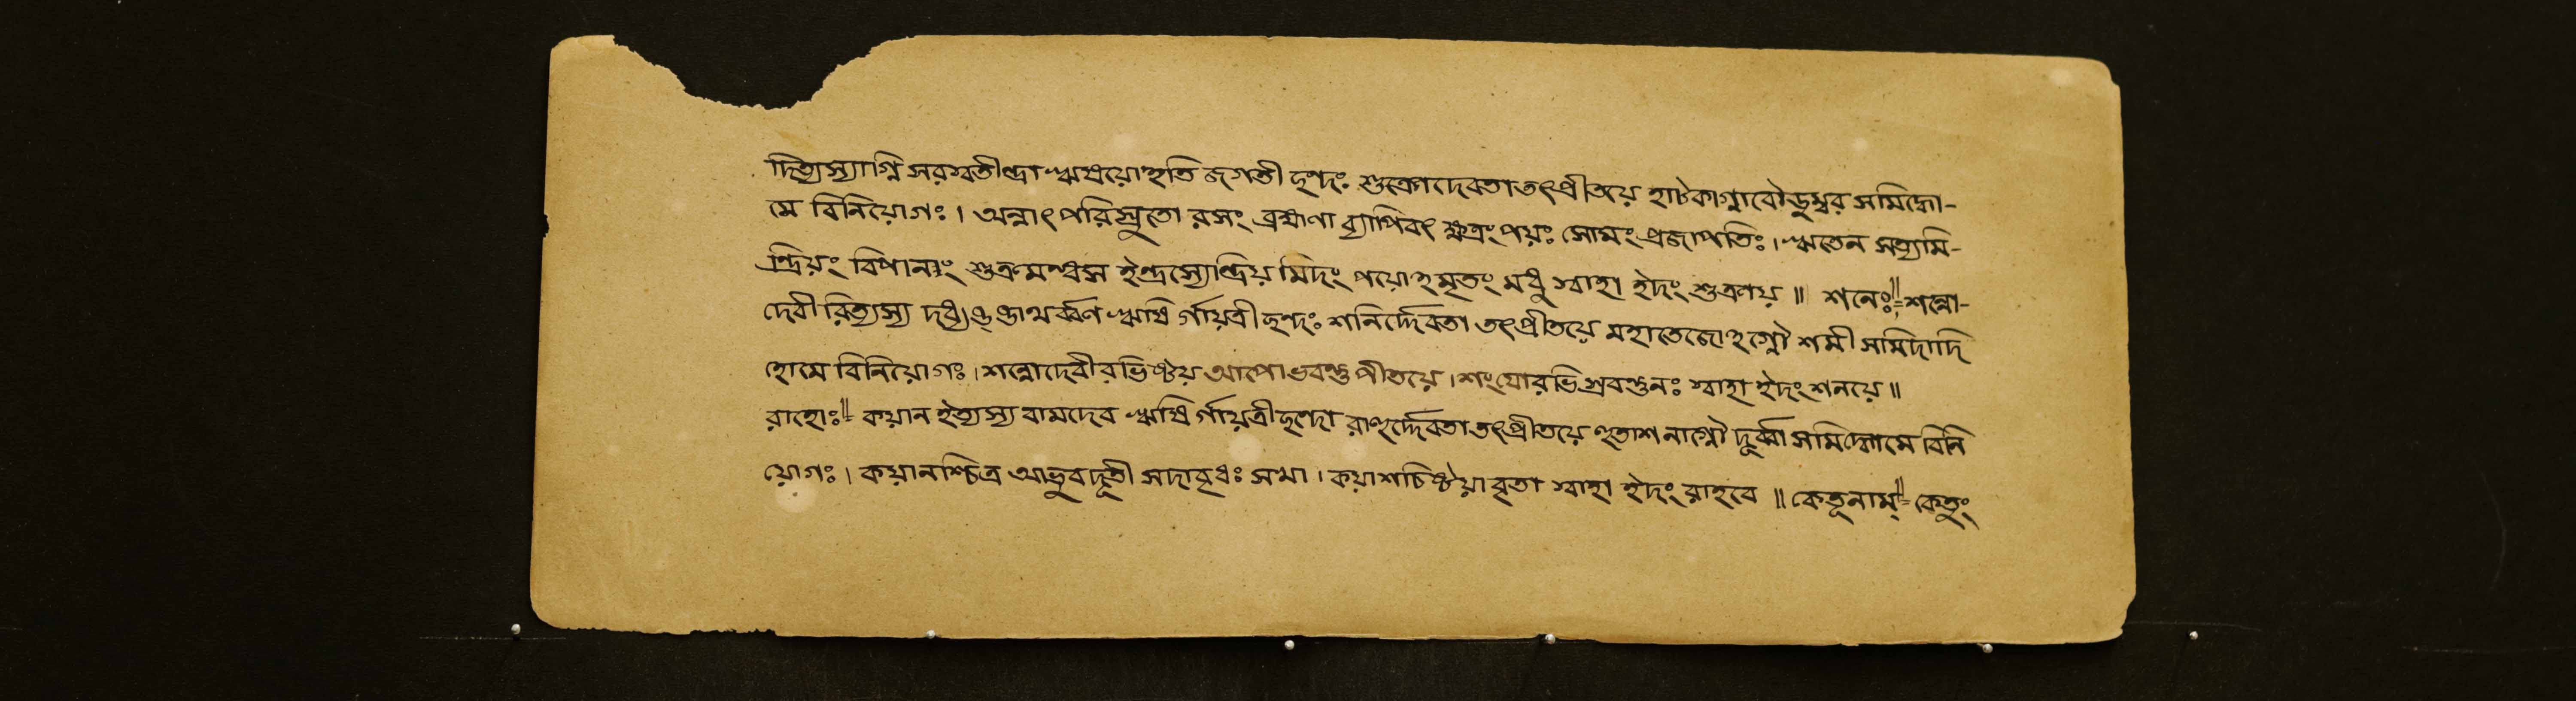 দিত্যস্যাগ্নি সরস্বতীন্দ্রা ঋষয়োঽতি জগতী ছন্দঃ শুক্রোদেবতাতৎপ্রীতয়ে হাটকাগ্নাবৌডুম্বর সমিদ্ধো-
মে বিনিয়োগঃ। অন্নাৎপরিস্রুতো রসং ব্রহ্মণা ব্যাপিবৎ ক্ষত্রংপয়ঃ সোমং প্রজাপতিঃ। ঋতেন সত্যমি-
ন্দ্রিয়ং বিপানং শুক্রমন্ধস ইন্দ্রস্যেন্দ্রিয় মিদং পয়োঽমৃতং মধু স্বাহা ইদং শুক্রায়॥ শনেঃ॥= শন্নো-
দেবী রিত্যস্য দধ্যঙ্ঙাথর্ব্বণ ঋষি র্গায়ত্রী ছন্দঃ শনির্দ্দেবতা তৎপ্রীতয়ে মহাতেজোঽগ্নৌ শমী সমিদাদি
হোমে বিনিয়োগঃ। শন্নোদেবীরভিষ্টয় আপোভবন্তু পীতয়ে। শংযোরভিস্রবন্তুনঃ স্বাহা ইদং শনয়ে॥
রাহোঃ॥= কয়ান ইত্যস্য বামদেব ঋষি র্গায়ত্রীছন্দো রাহুর্দ্দেবতাতৎপ্রীতয়ে হুতাশনাগ্নৌ দূর্ব্বা সমিদ্ধোমে বিনি
য়োগঃ। কয়ানশ্চিত্র আভুবদূতী সদাবৃধঃ সখা। কয়াশচিষ্টয়াবৃতা স্বাহা ইদং রাহবে॥ কেতূনাম্॥= কেতুং